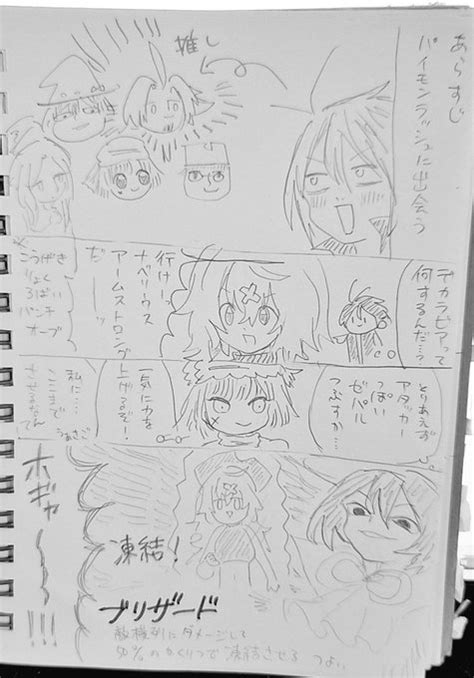 あらすじ
パイモンラッシュに出会う
推し
デカラビアって
何するんだ…?
行けー!
ナベリウス
アームストロング
だーーッ
こうげき
りょく
ろばい
パンチ
オーブ
とりあえず
アタッカー
っぽい
ゼパル
つぶすか…
一気に力を
上げるぞー!
私に…
ここまで
させるなんて
ホギャーーー!!!
凍結!
ブリザード
敵横列にダメージして
50%のかくりつで凍結させる つよい